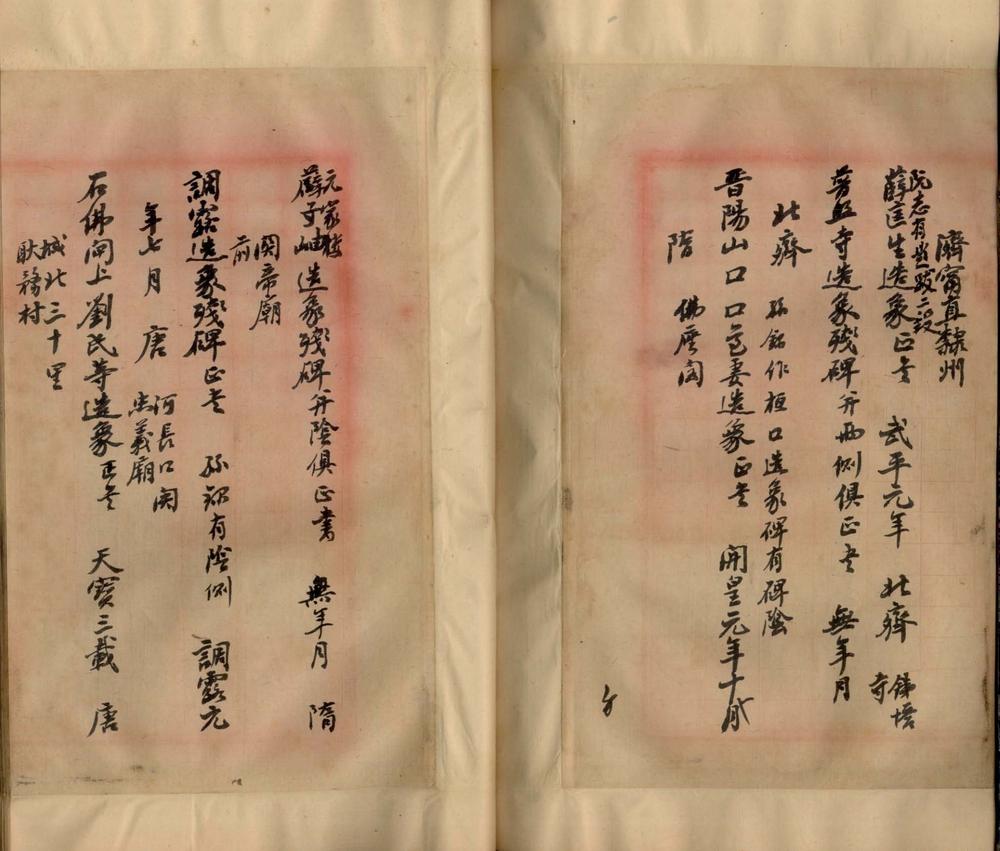 濟甯直隸州
阮志有
薛匡生造象正書 武平元年 北齊 佛塔寺
普照寺造象殘碑并兩側俱正書 無年月
北齊 孫錄作桓口造象碑有碑陰
晉陽山口口造象正書 開皇元年十
隋 佛
薛子岫造象殘碑并陰俱正書 無年月 隋
元家樓
關帝廟前
調露造象殘碑正書 孫錄有陰側 調露元
年七月 唐 河長口關忠義廟
石佛閘上劉民等造象正書 天寶三載 唐
城北三十里
耿務村